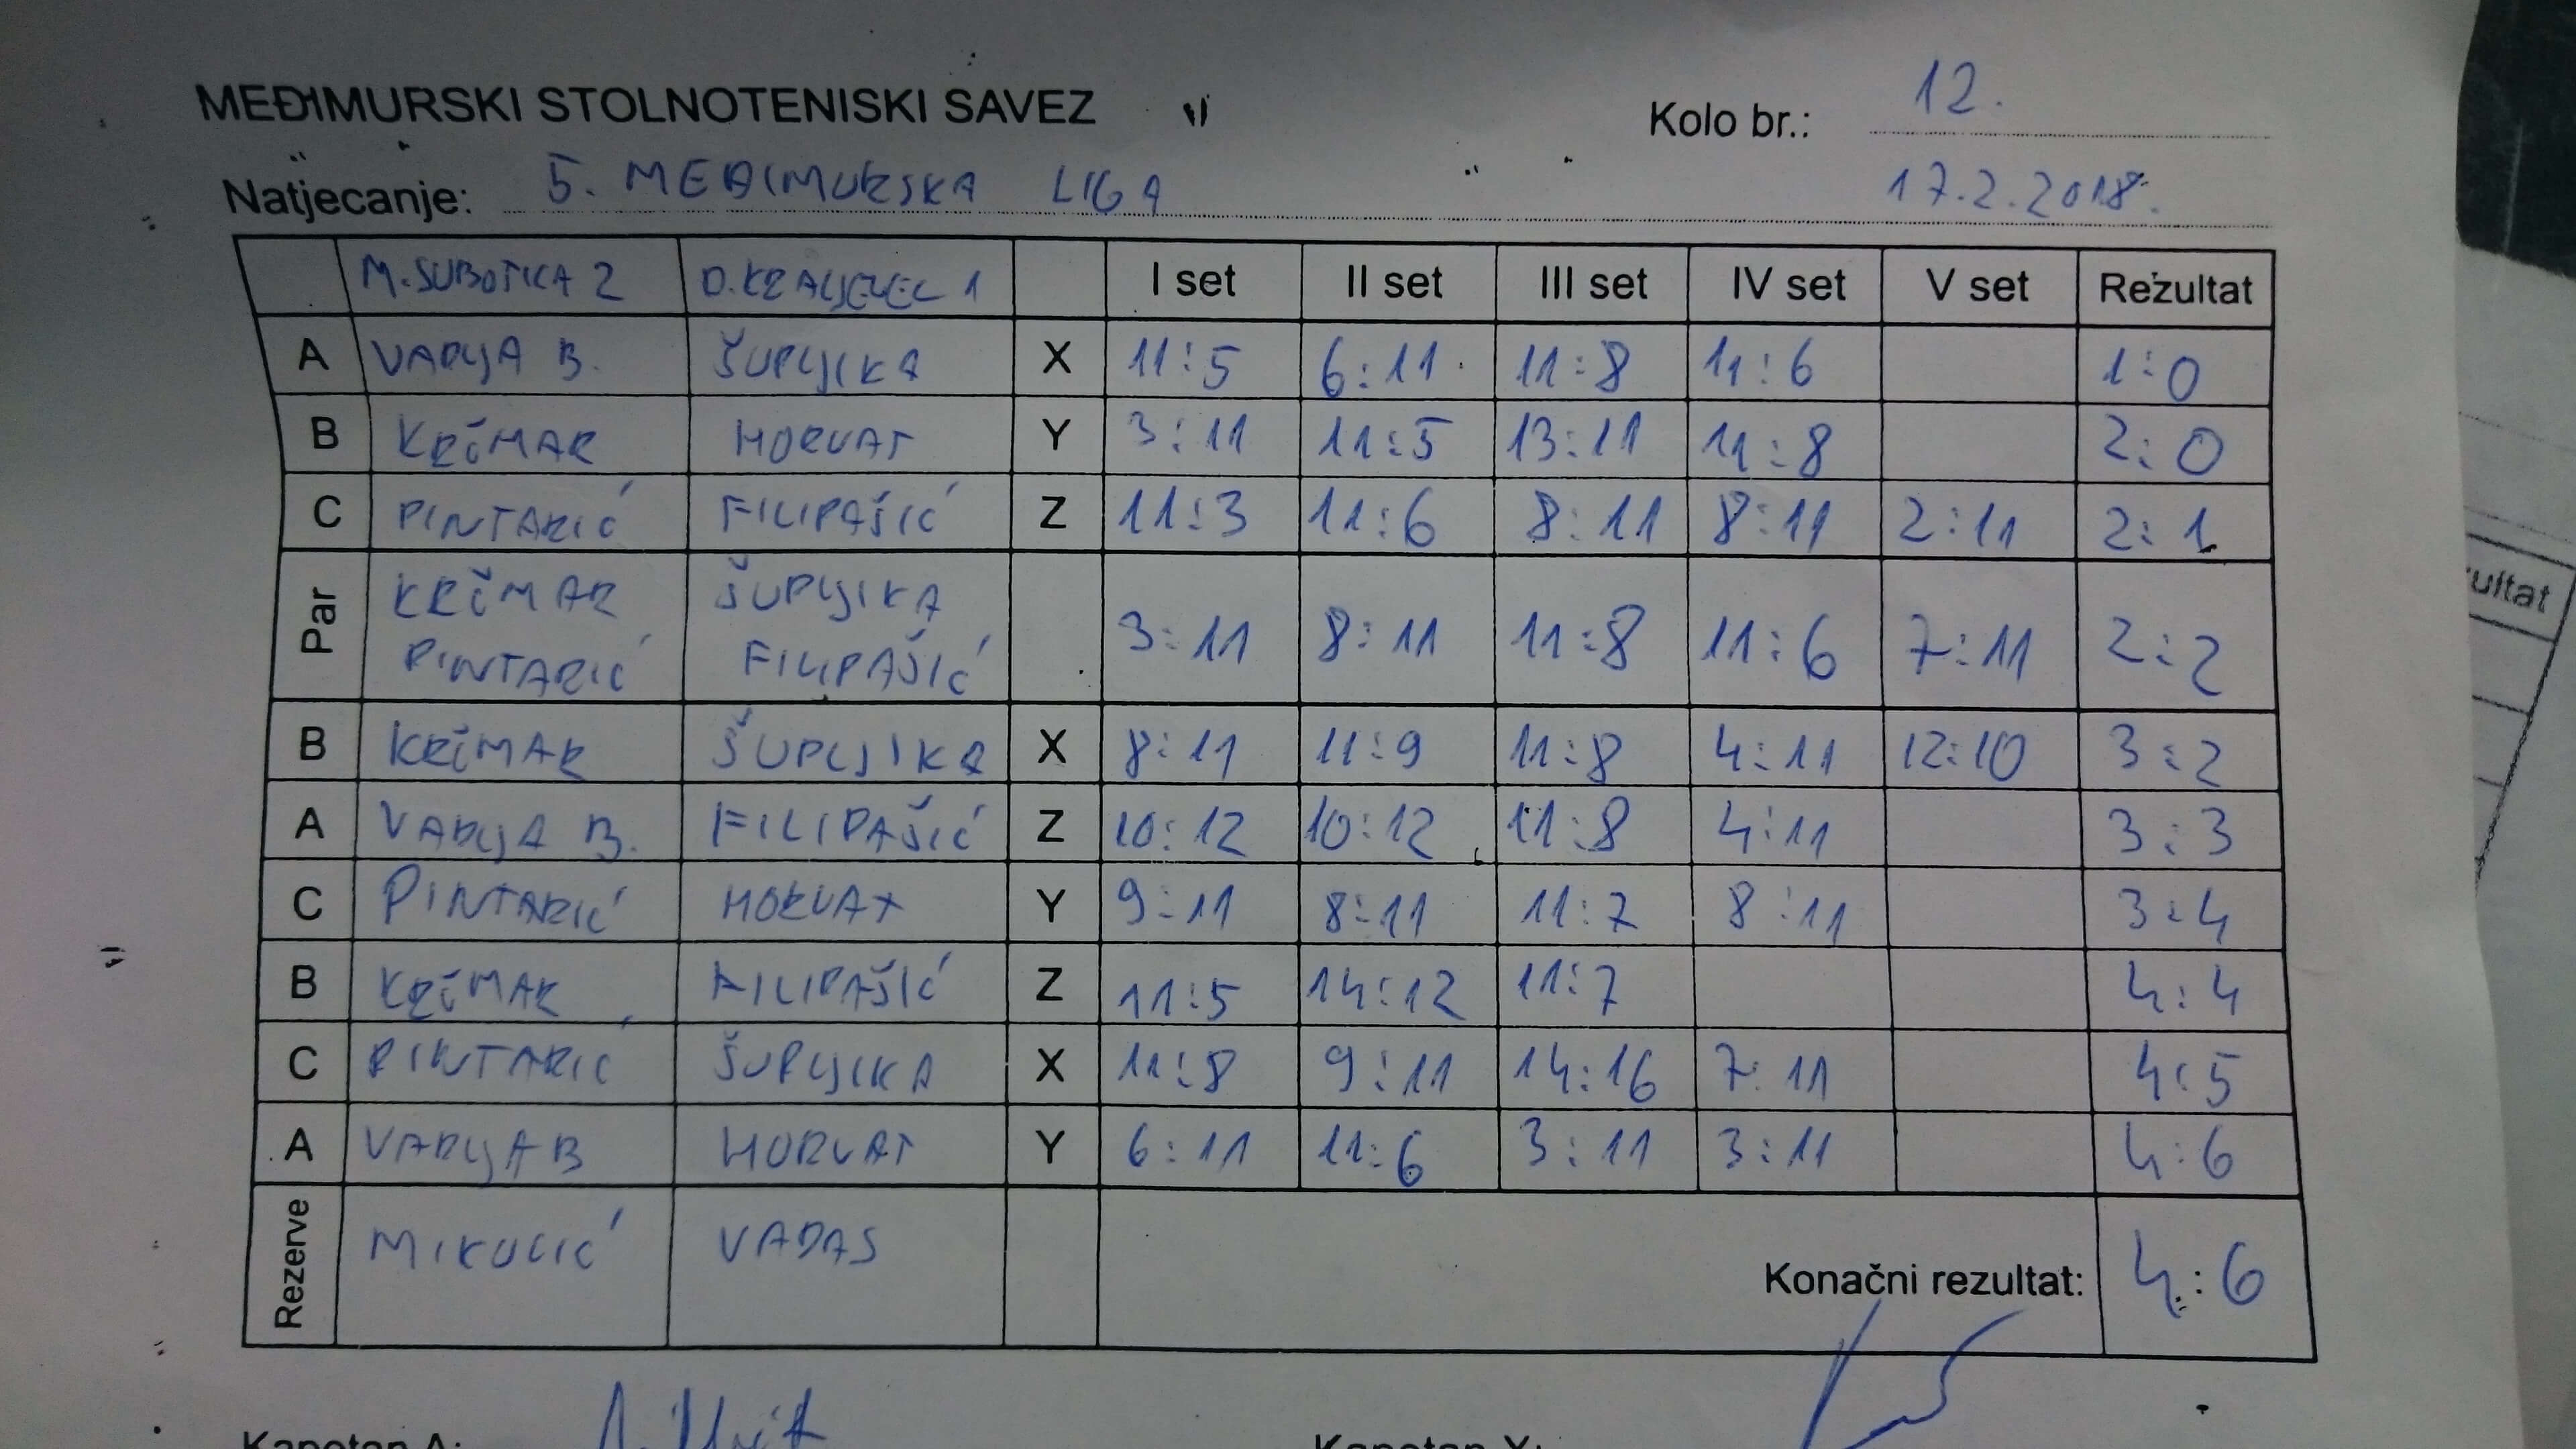 MEĐIMURSKI STOLNOTENISKI SAVEZ
Kolo br.: 12.
Natjecanje: 5. MEĐIMURSKA LIGA 17.2.2018.
M.SUBOTICA 2 D.KRALJEVEC 1 I set II set III set IV set V set Rezultat
A VARLJA B. ŠUPLJIKA X 11:5 6:11 11:8 11:6 1:0
B KRČMAR HORVAT Y 3:11 11:5 13:11 11:8 2:0
C PINTARIĆ FILIPAŠIĆ Z 11:3 11:6 8:11 8:11 2:11 2:1
Par KRČMAR PINTARIĆ ŠUPLJIKA FILIPAŠIĆ 3:11 8:11 11:8 11:6 7:11 2:2
B KRČMAR ŠUPLJIKA X 8:11 11:9 11:8 4:11 12:10 3:2
A VARLJA B. FILIPAŠIĆ Z 10:12 10:12 11:8 4:11 3:3
C PINTARIĆ HORVAT Y 9:11 8:11 11:7 8:11 3:4
B KRČMAR FILIPAŠIĆ Z 11:5 14:12 11:7 4:4
C PINTARIĆ ŠUPLJIKA X 11:8 9:11 14:16 7:11 4:5
A VARLJA B HORVAT Y 6:11 11:6 3:11 3:11 4:6
Rezerve MIKULIĆ VADAS Konačni rezultat: 4:6
Kapetan A: Kapetan X:
ultat